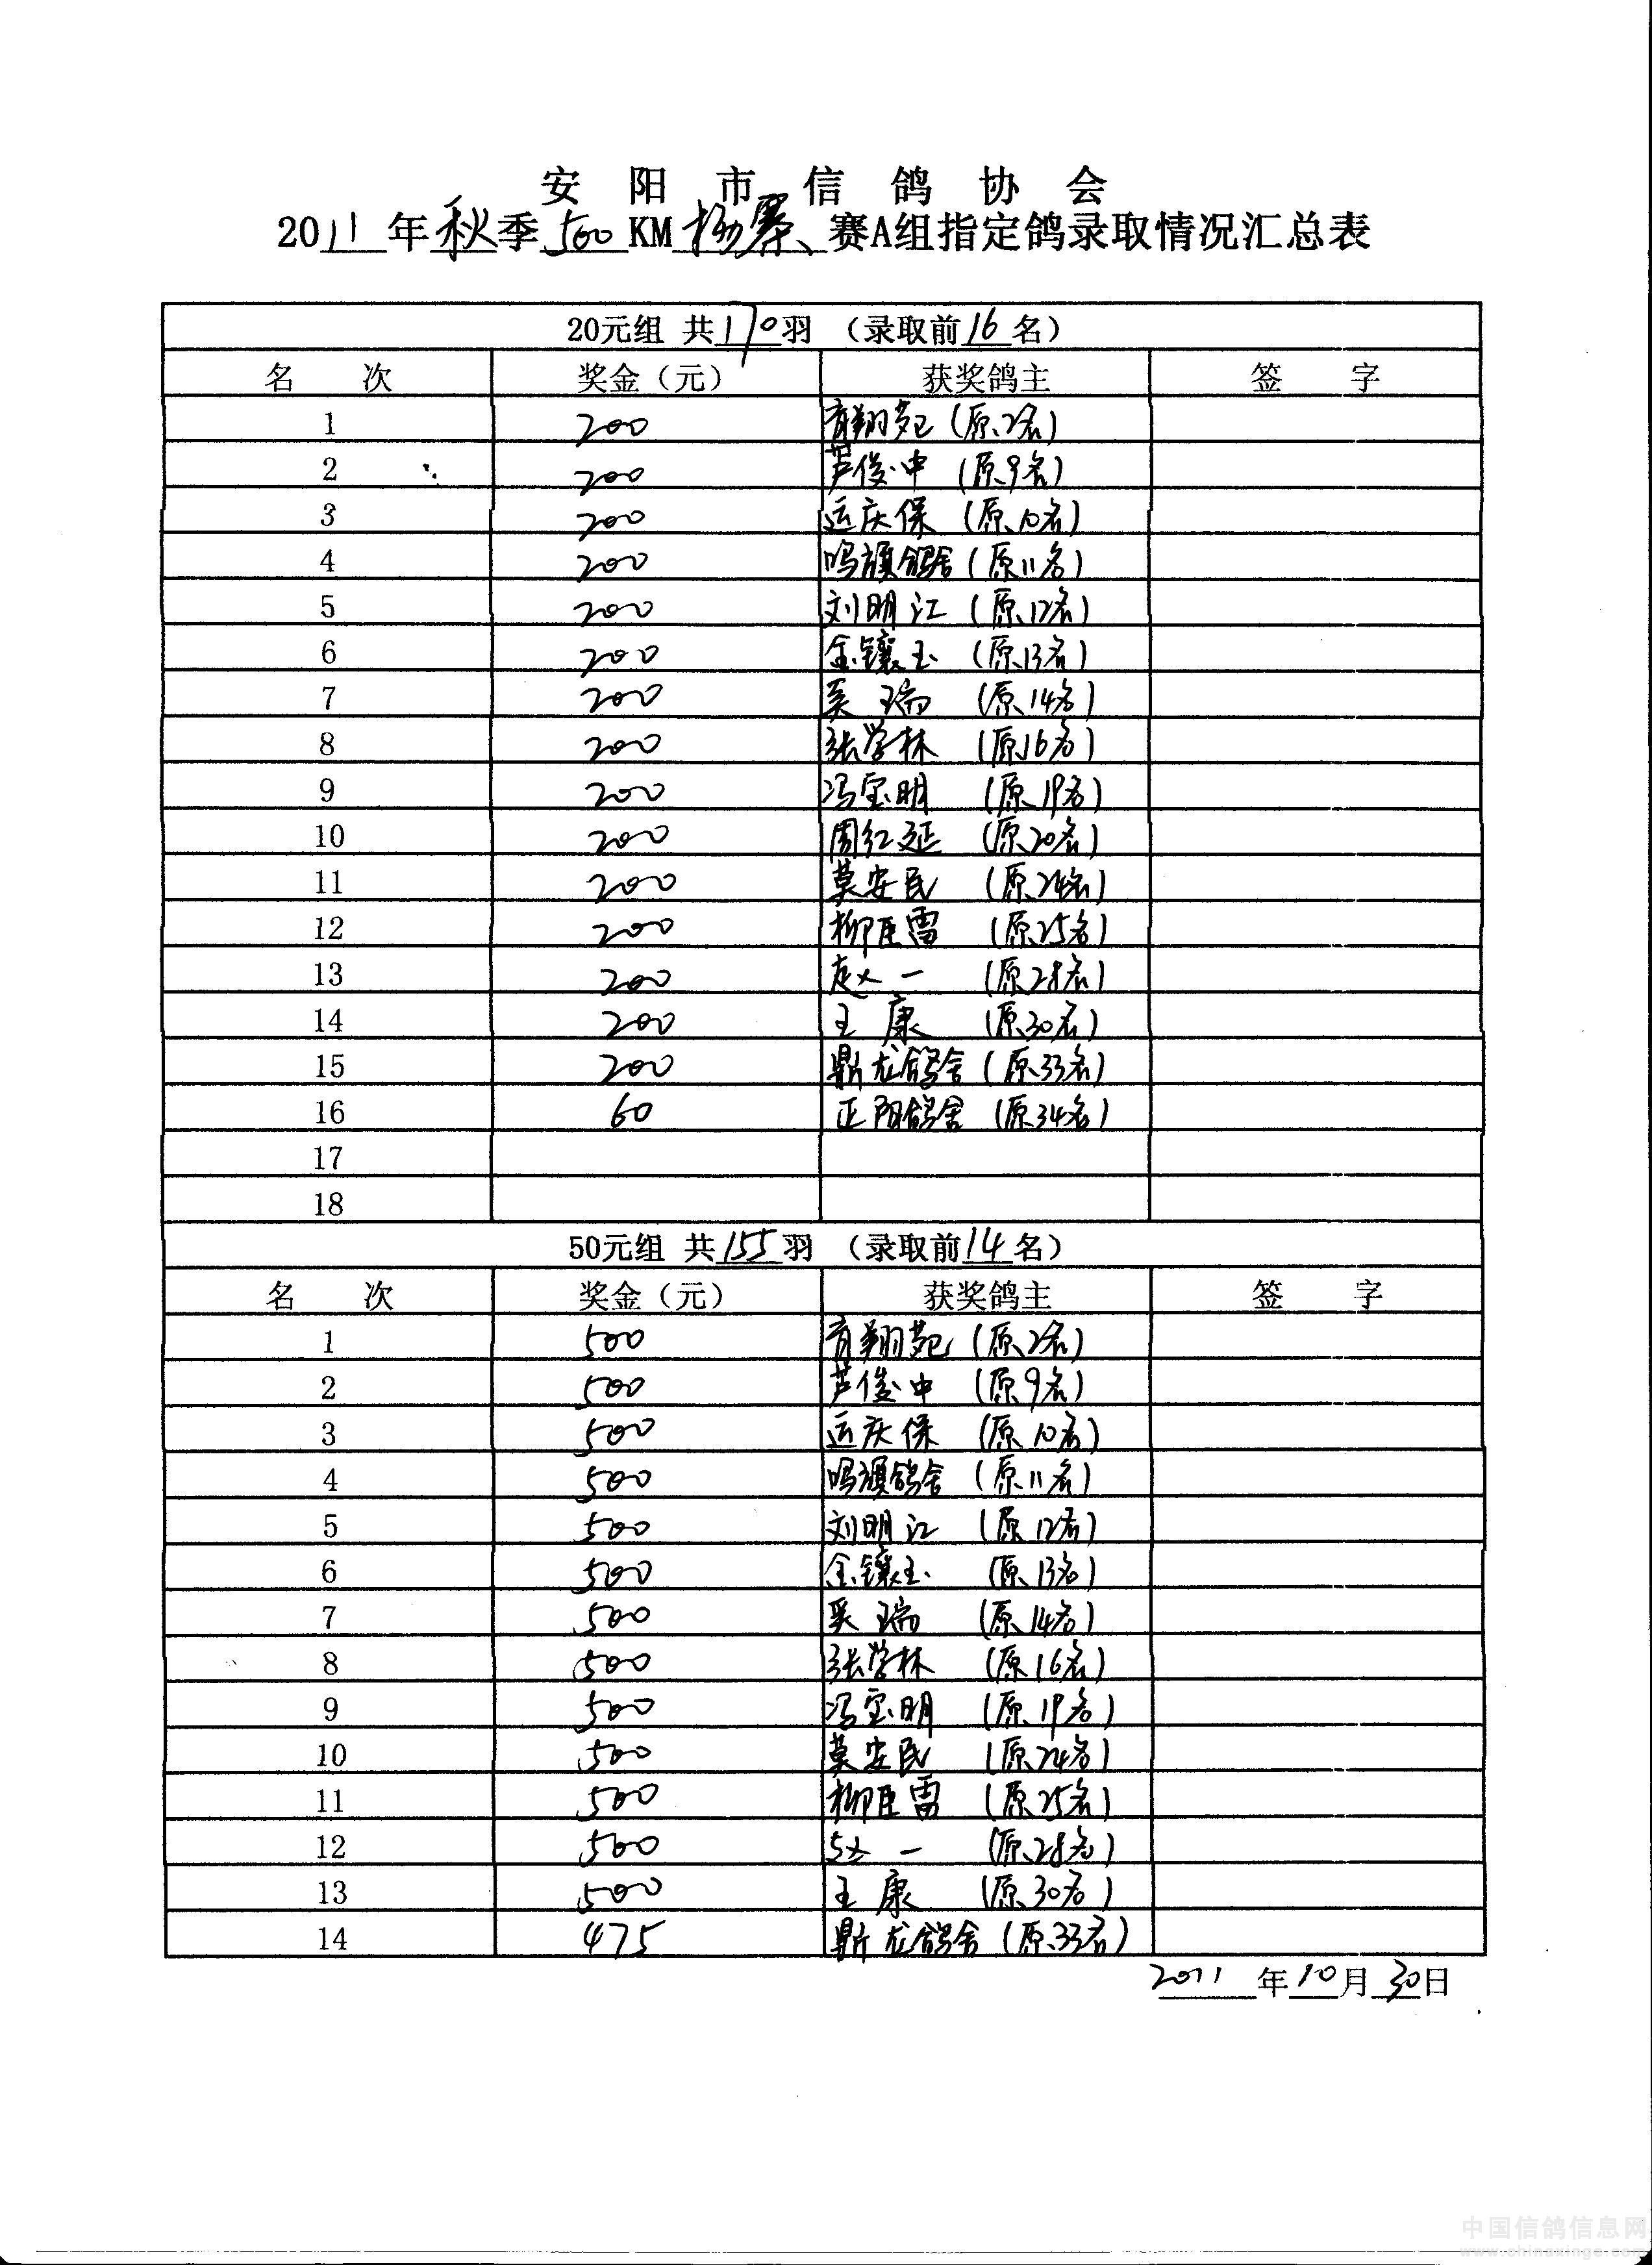 安阳市信鸽协会
2011年秋季500KM杨寨赛A组指定鸽录取情况汇总表
20元组 共170羽 （录取前16名）
名 次 奖金（元） 获奖鸽主 签 字
1 200 育翔苑（原2名）
2 200 芦俊中（原9名）
3 200 运庆保（原10名）
4 200 鸣旗鸽舍（原11名）
5 200 刘明江（原12名）
6 200 金镶玉（原13名）
7 200 吴瑞（原14名）
8 200 张学林（原16名）
9 200 冯宝明（原19名）
10 200 周红延（原20名）
11 200 莫安民（原24名）
12 200 柳臣雷（原25名）
13 200 赵一（原28名）
14 200 王康（原30名）
15 200 鼎龙鸽舍（原33名）
16 60 正阳鸽舍（原34名）
17
18
50元组 共155羽 （录取前14名）
名 次 奖金（元） 获奖鸽主 签 字
1 500 育翔苑（原2名）
2 500 芦俊中（原9名）
3 500 运庆保（原10名）
4 500 鸣旗鸽舍（原11名）
5 500 刘明江（原12名）
6 500 金镶玉（原13名）
7 500 吴瑞（原14名）
8 500 张学林（原16名）
9 500 冯宝明（原19名）
10 500 莫安民（原24名）
11 500 柳臣雷（原25名）
12 500 赵一（原28名）
13 500 王康（原30名）
14 475 鼎龙鸽舍（原33名）
2011年10月30日
中国信鸽信息网